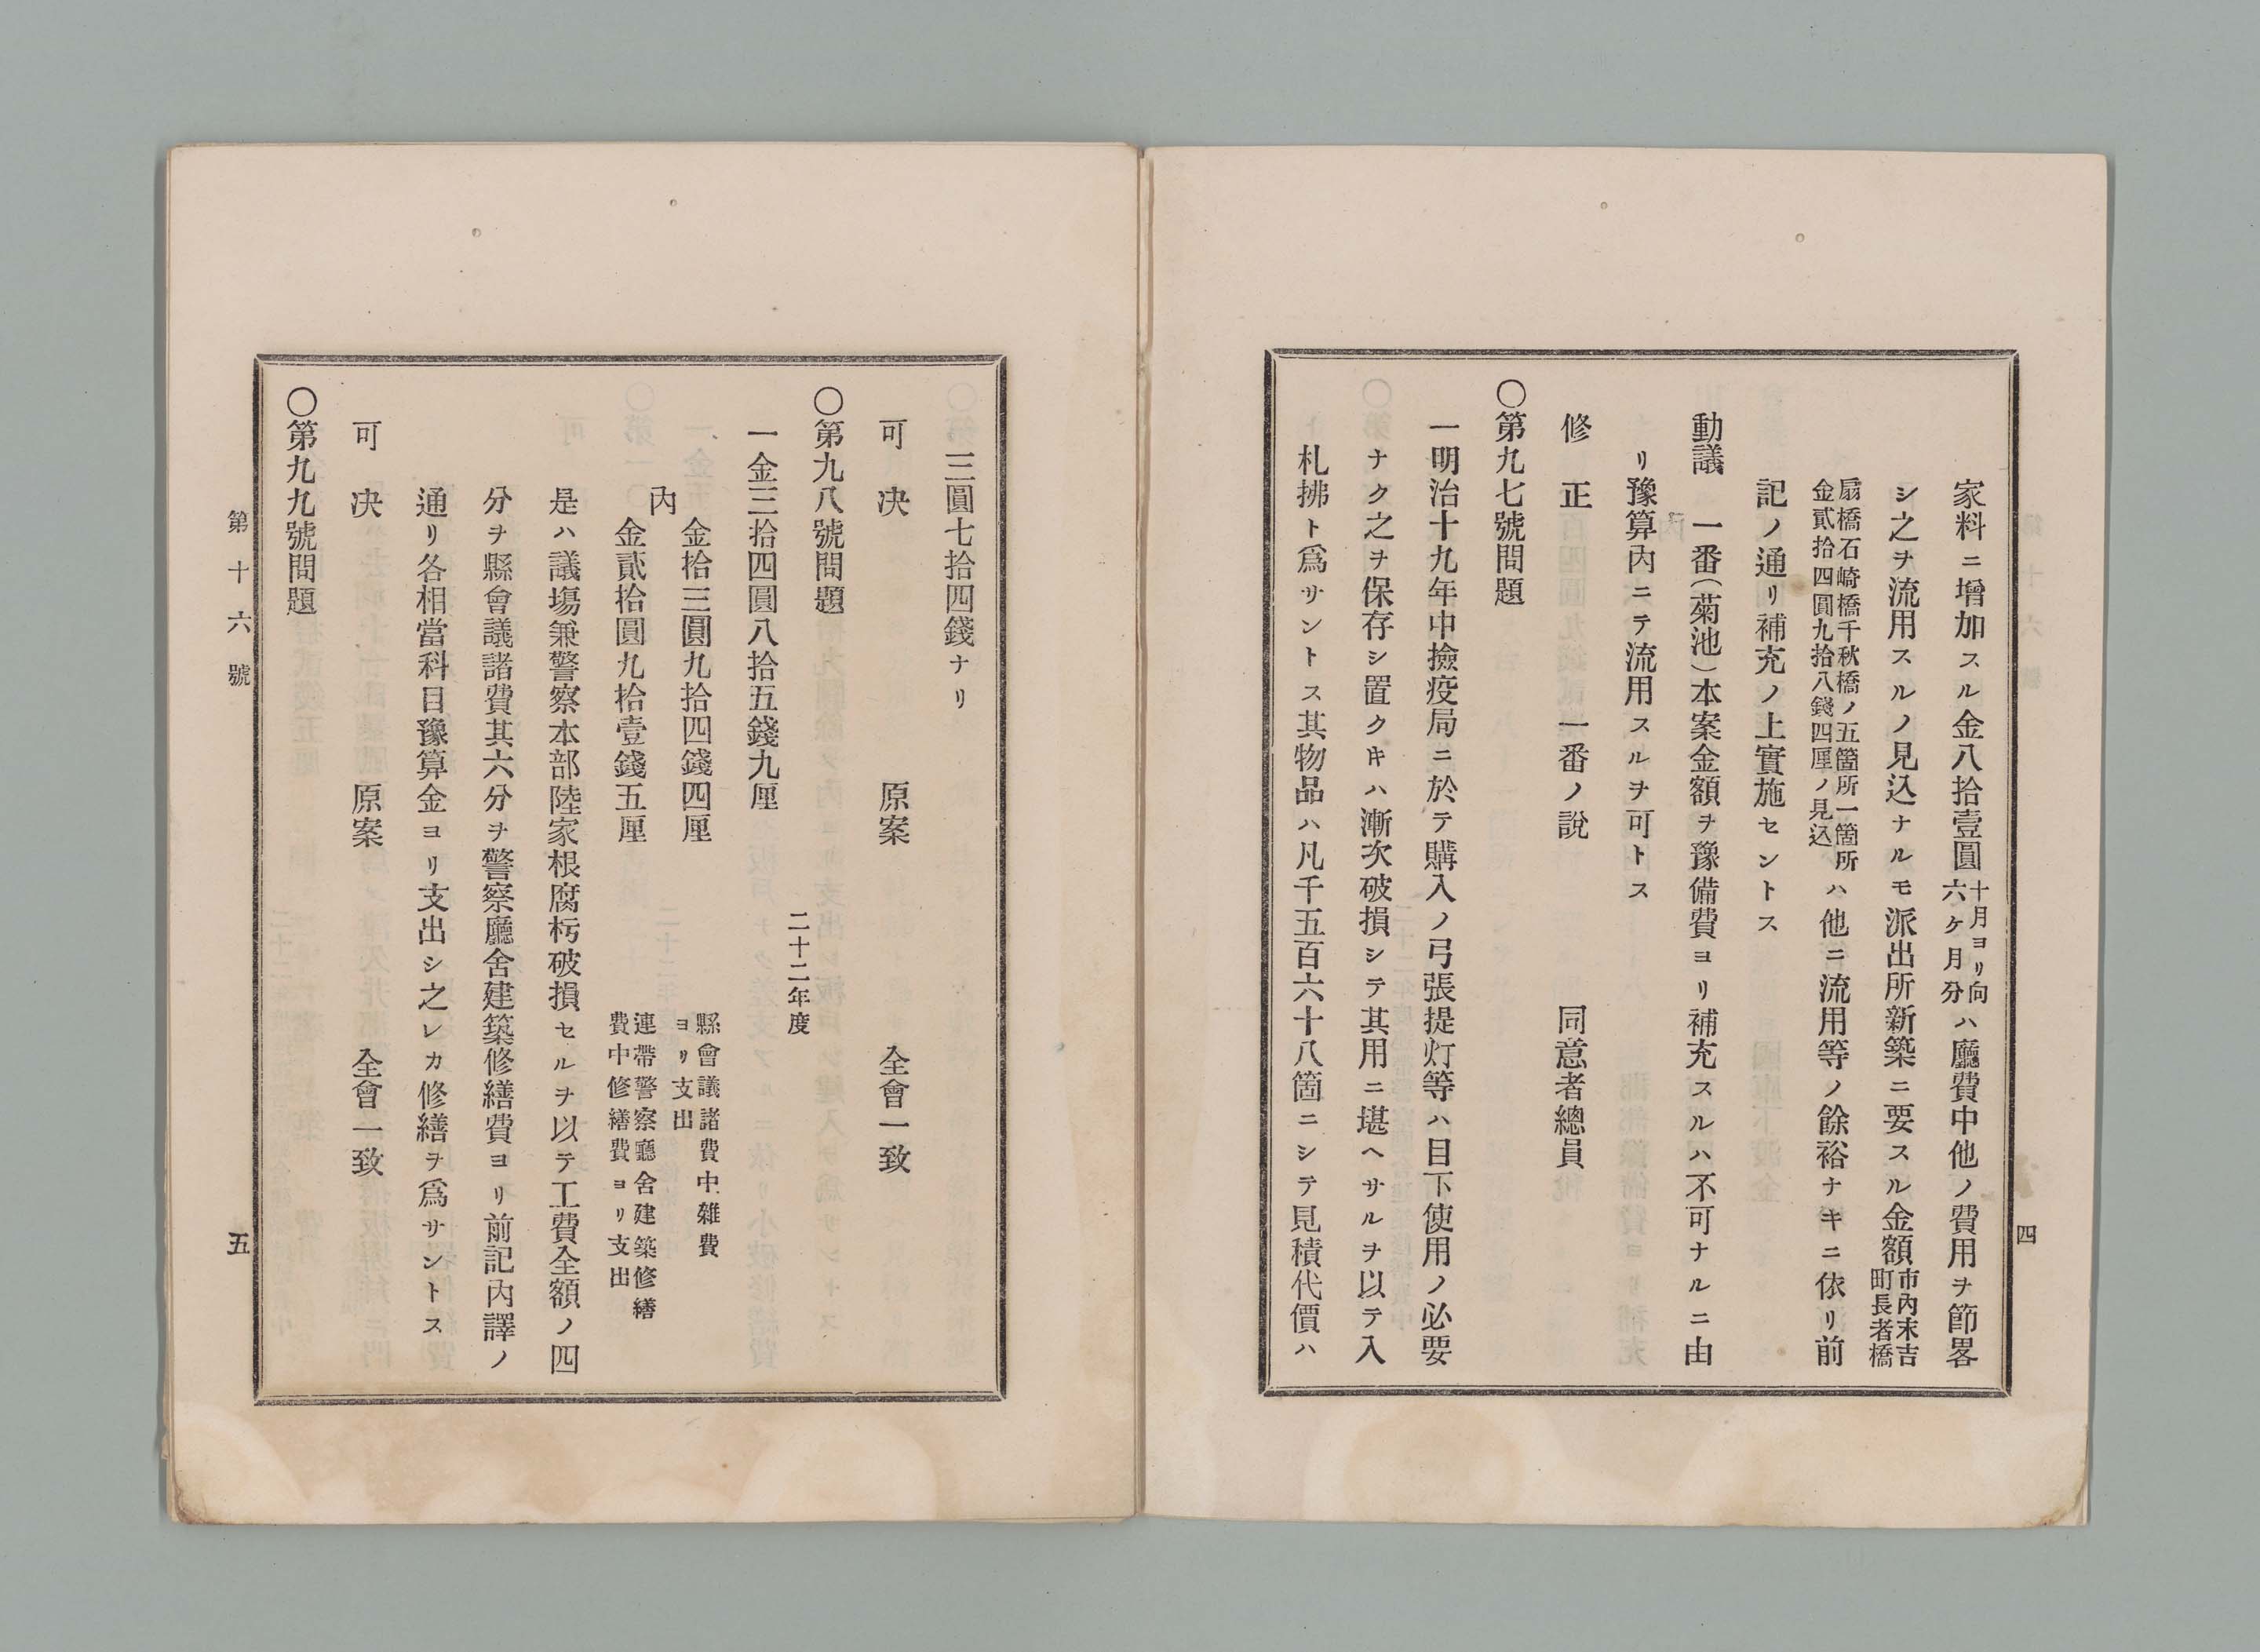 家料ニ増加スル金八拾壹圓十月ヨリ向六ケ月分ハ廳費中他ノ費用ヲ節畧
シ之ヲ流用スルノ見込ナルモ派出所新築ニ要スル金額市內末吉町長者橋
扇橋石崎橋千秋橋ノ五箇所一箇所金貳拾四圓九拾八錢四厘ノ見込ハ他ニ流用等ノ餘裕ナキニ依リ前
記ノ通リ補充ノ上實施セントス
動議 一番(菊池)本案金額ヲ豫備費ヨリ補充スルハ不可ナルニ由
リ豫算內ニテ流用スルヲ可トス
修正 一番ノ說 同意者總員
〇第九七號問題
一明治十九年中撿疫局ニ於テ購入ノ弓張提灯等ハ目下使用ノ必要
ナク之ヲ保存シ置クキハ漸次破損シテ其用ニ堪ヘサルヲ以テ入
札拂ト爲サントス其物品ハ凡千五百六十八箇ニシテ見積代價ハ
四
三圓七拾四錢ナリ
可决 原案 全會一致
〇第九八號問題
二十二年度
一金三拾四圓八拾五錢九厘
內
金拾三圓九拾四錢四厘 縣會議諸費中雜費ヨリ支出
金貳拾圓九拾壹錢五厘 連帶警察廳舍建築修繕費中修繕費ヨリ支出
是ハ議塲兼警察本部陸家根腐朽破損セルヲ以テ工費全額ノ四
分ヲ縣會議諸費其六分ヲ警察廳舍建築修繕費ヨリ前記內譯ノ
通リ各相當科目豫算金ヨリ支出シ之レカ修繕ヲ爲サントス
可决 原案 全會一致
〇第九九號問題
第十六號
五